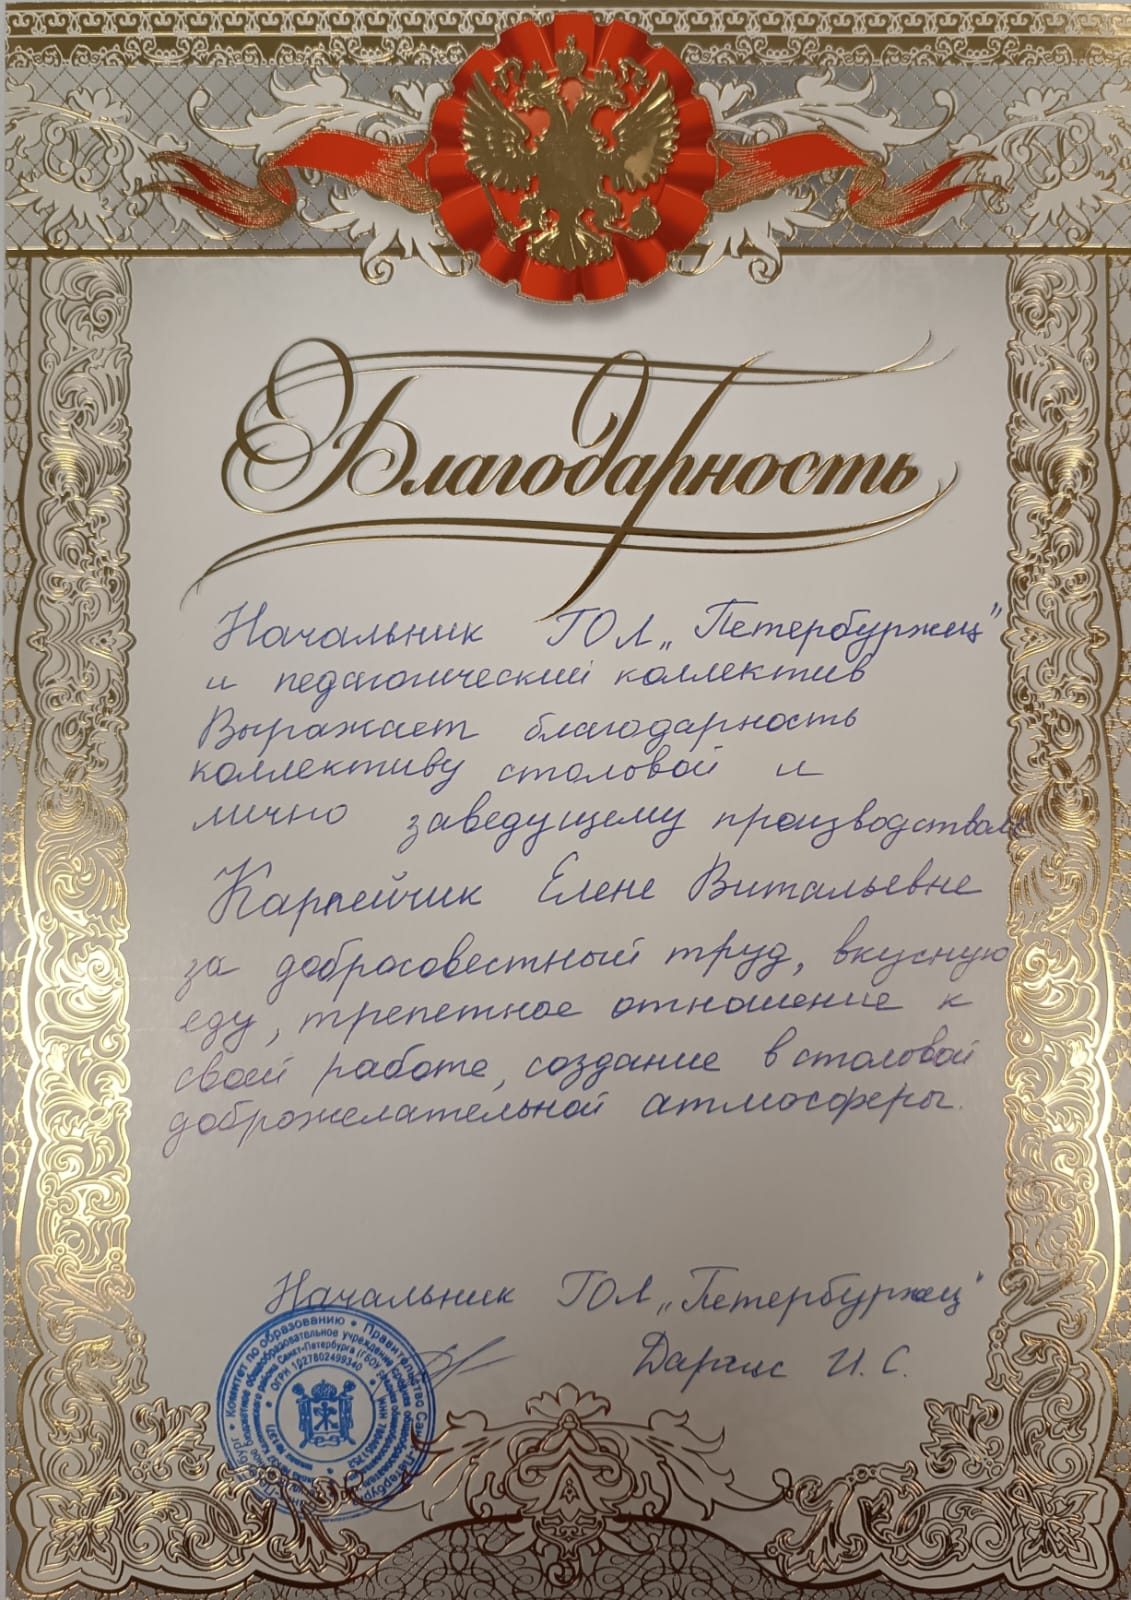 Благодарность
Начальник ГОЛ „Петербуржец"
и педагогический коллектив
Выражает благодарность
коллективу столовой и
лично заведущему производством
Карпейчик Елене Витальевне
за добросовестный труд, вкусную
еду, трепетное отношение к
своей работе, создание в столовой
доброжелательной атмосферы.
Начальник ГОЛ „Петербуржец"
И. С.
Комитет по образованию • Правительство
общеобразовательное учреждение
Санкт-Петербурга (ГБОУ
ОГРН 1027802499340
ИНН